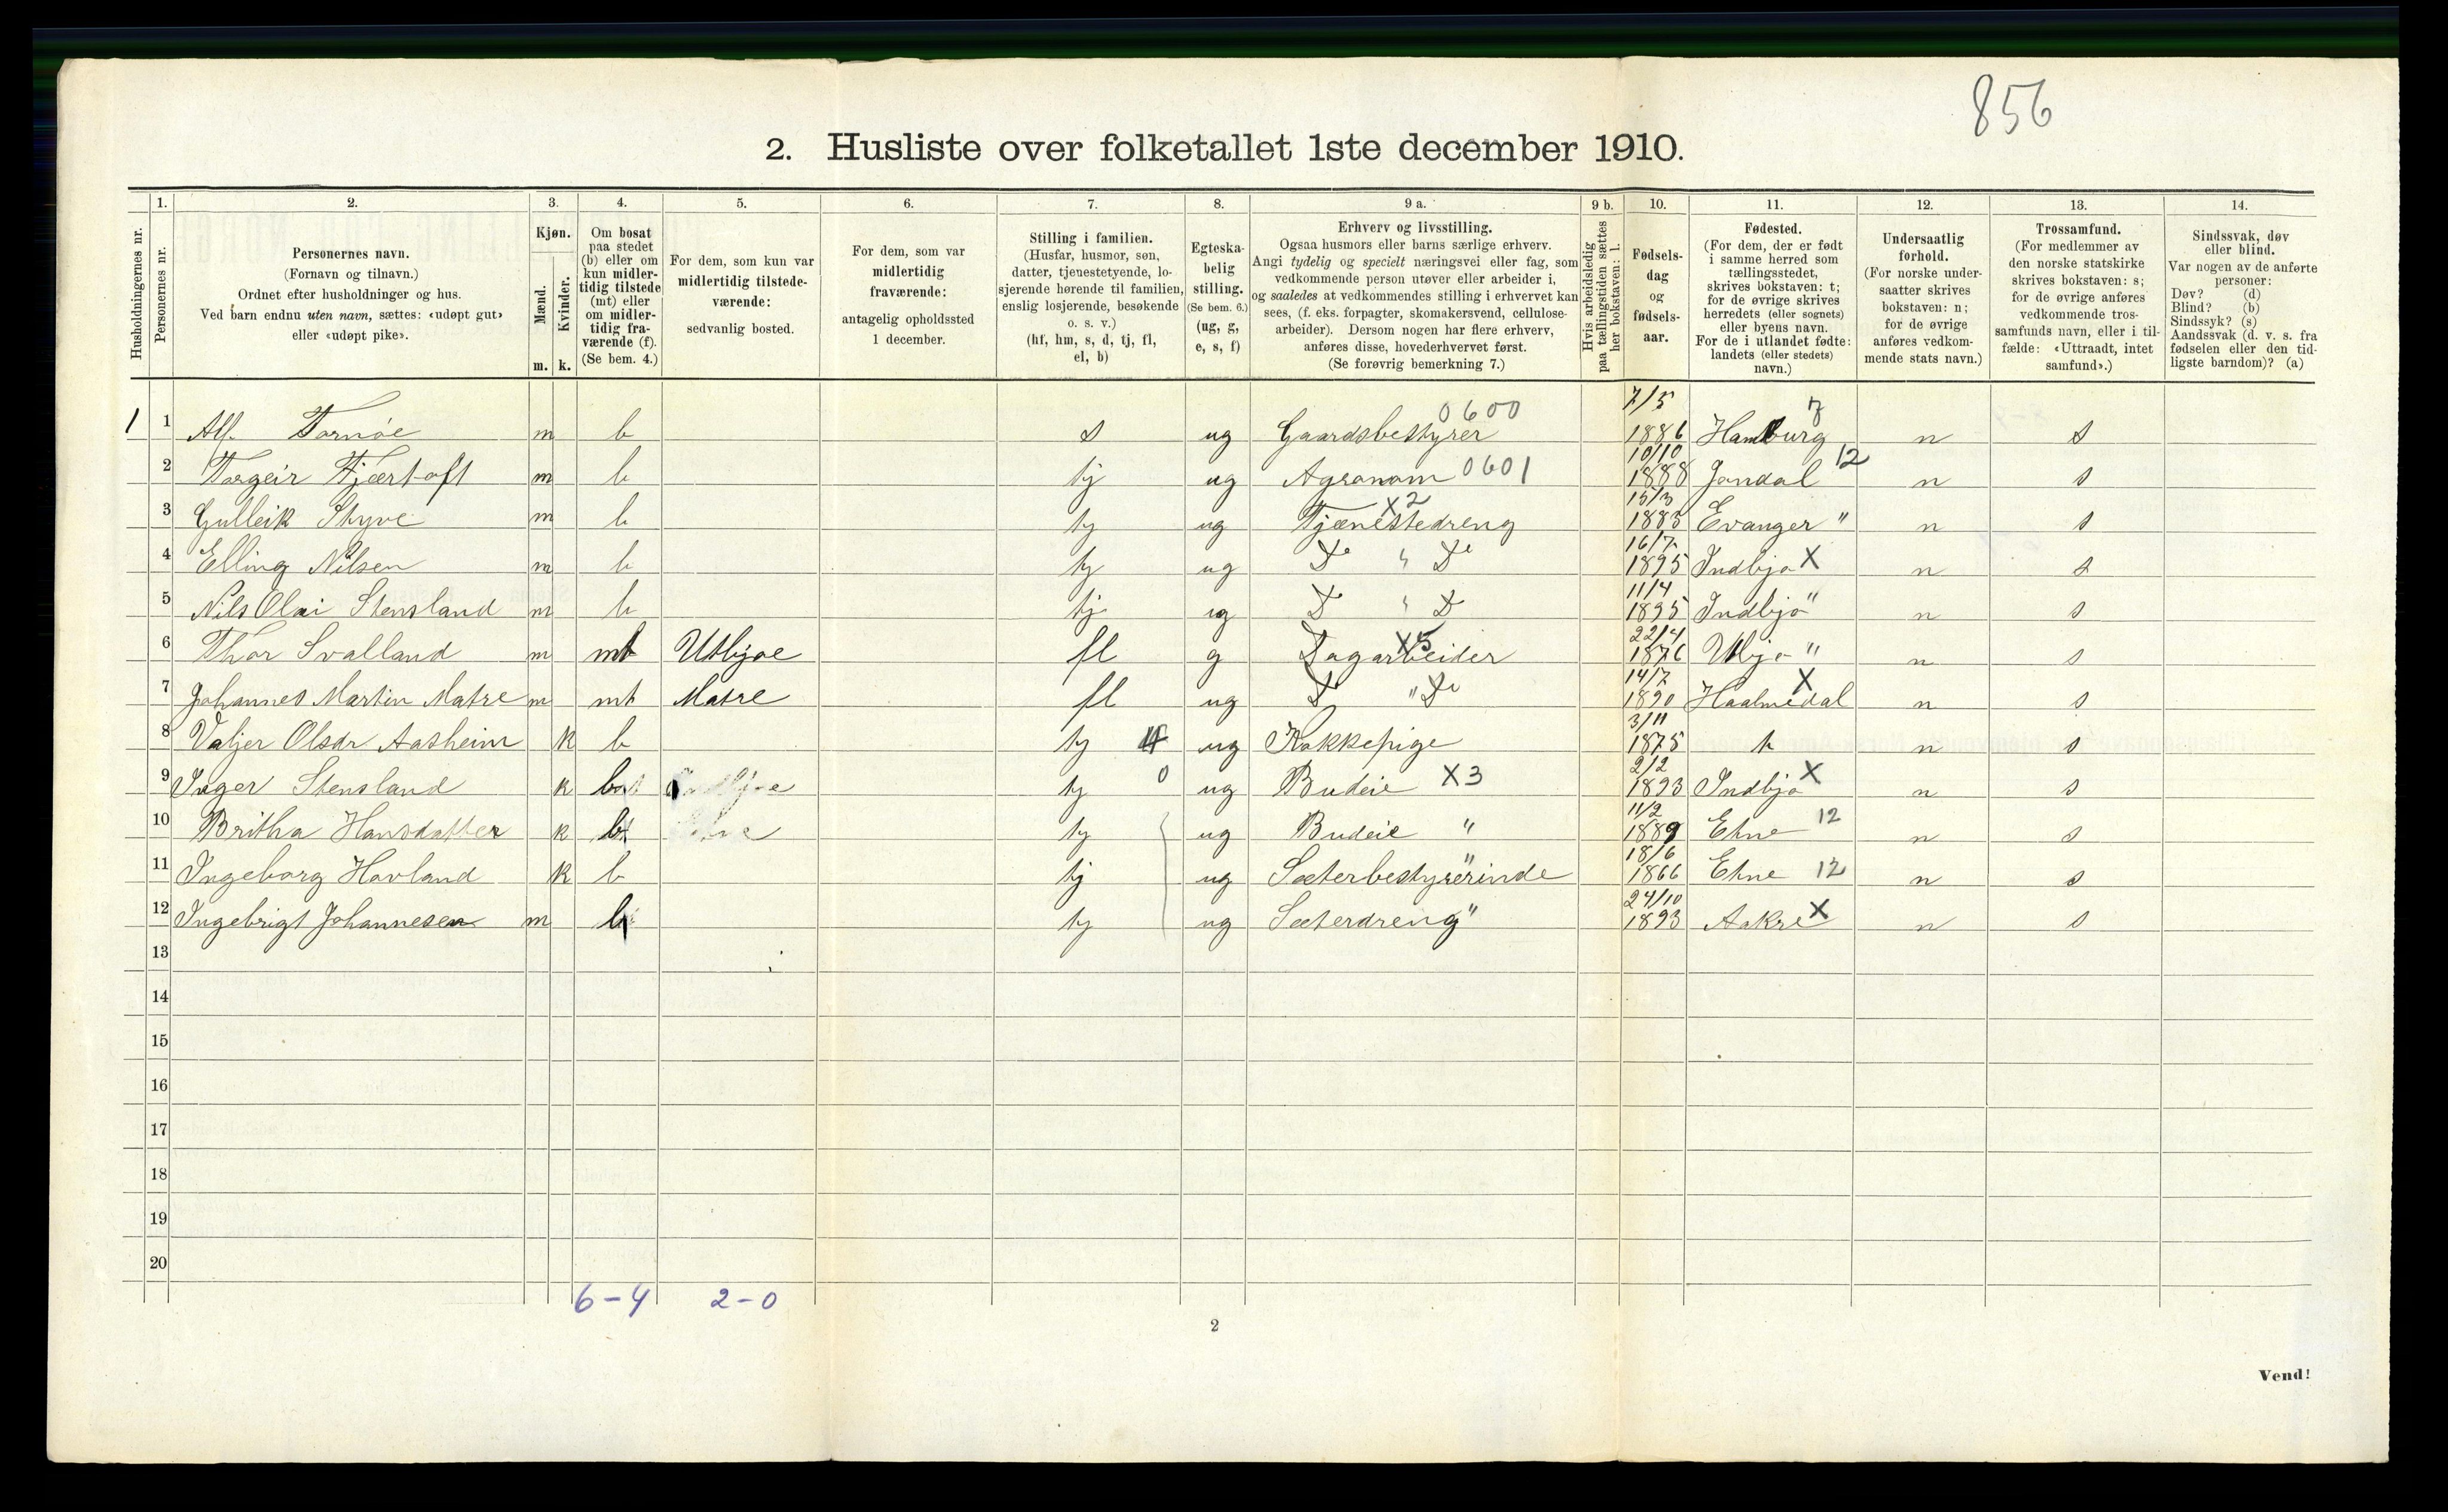 856
2. Husliste over folketallet 1ste december 1910.
Husholdningernes nr.
1.
Personernes nr.
2.
Personernes navn.
(Fornavn og tilnavn.)
Ordnet efter husholdninger og hus.
Ved barn endnu uten navn, sættes: «udøpt gut»
eller «udøpt pike».
3.
Kjøn.
Mænd.
Kvinder.
m. k.
4.
Om bosat
paa stedet
(b) eller om
kun midler-
tidig tilstede
(mt) eller
om midler-
tidig fra-
værende (f).
(Se bem. 4.)
5.
For dem, som kun var
midlertidig tilstede-
værende:
sedvanlig bosted.
6.
For dem, som var
midlertidig
fraværende:
antagelig opholdssted
1 december.
7.
Stilling i familien.
(Husfar, husmor, søn,
datter, tjenestetyende, lo-
sjerende hørende til familien,
enslig losjerende, besøkende
o. s. v.)
(hf, hm, s, d, tj, fl,
el, b)
8.
Egteska-
belig
stilling.
(Se bem. 6.)
(ug, g,
e, s, f)
9 a.
Erhverv og livsstilling.
Ogsaa husmors eller barns særlige erhverv.
Angi tydelig og specielt næringsvei eller fag, som
vedkommende person utøver eller arbeider i,
og saaledes at vedkommendes stilling i erhvervet kan
sees, (f. eks. forpagter, skomakersvend, cellulose-
arbeider). Dersom nogen har flere erhverv,
anføres disse, hovederhvervet først.
(Se forøvrig bemerkning 7.)
9 b.
Hvis arbeidsledig
paa tællingstiden sættes
her bokstaven: l.
10.
Fødsels-
dag
og
fødsels-
aar.
11.
Fødested.
(For dem, der er født
i samme herred som
tællingsstedet,
skrives bokstaven: t;
for de øvrige skrives
herredets (eller sognets)
eller byens navn.
For de i utlandet fødte:
landets (eller stedets)
navn.)
12.
Undersaatlig
forhold.
(For norske under-
saatter skrives
bokstaven: n;
for de øvrige
anføres vedkom-
mende stats navn.)
13.
Trossamfund.
(For medlemmer av
den norske statskirke
skrives bokstaven: s;
for de øvrige anføres
vedkommende tros-
samfunds navn, eller i til-
fælde: «Uttraadt, intet
samfund».)
14.
Sindssvak, døv
eller blind.
Var nogen av de anførte
personer:
Døv? (d)
Blind? (b)
Sindssyk? (s)
Aandssvak (d. v. s. fra
fødselen eller den tid-
ligste barndom)? (a)
1 1 Alf. Tornöe m b s ug Gaardsbestyrer 0600 7/5 1886 Hamburg 7 n s
2 Torgeir Fjærtoft m b tj ug Agronom 0601 10/10 1888 Jondal 12 n s
3 Gulleik Styve m b tj ug Tjænestedreng X2 15/3 1883 Evanger " n s
4 Elling Nilsen m b tj ug Do " Do 16/7 1895 Indbjo X n s
5 Nils Olai Stensland m b tj ug D " D 11/4 1895 Indbjo " n s
6 Thor Svalland m mt Utbjoe fl g Dagarbeider X5 22/4 1876 Utbjo " n s
7 Johannes Martin Matre m mt Matre fl ug D " Do 14/7 1890 Haalmedal X n s
8 Valjer Olsdr Aasheim k b tj ug Kokkepige 3/11 1875 t n s
9 Inger Stensland k b tj 0 ug Budeie X3 2/2 1893 Indbjo X n s
10 Britha Hansdatter k b tj ug Budeie " 11/2 1889 Etne 12 n s
11 Ingeborg Havland k b tj ug Sæterbestyrerinde " 18/6 1866 Etne 12 n s
12 Ingebrigt Johannesen m b tj ug Sæterdreng " 24/10 1893 Aakre X n s
13
14
15
16
17
18
19
20
6-4 2-0
2
Vend!